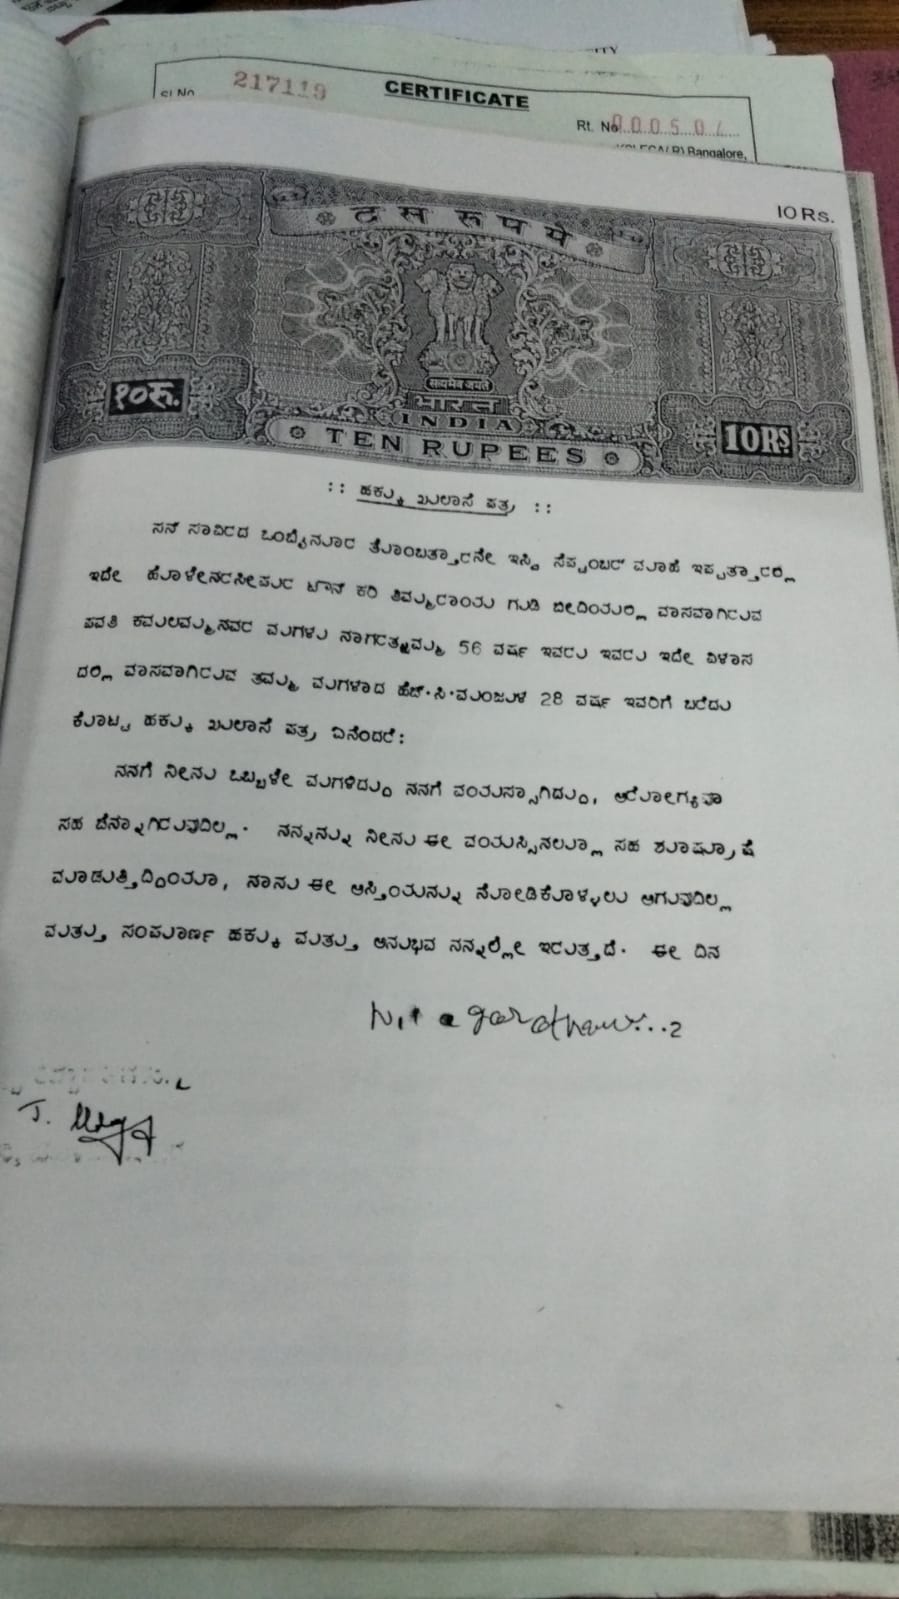 217119
CERTIFICATE
Sl No
Rt. No 000504
(R) Bangalore,
10 Rs.
दस रुपये
सत्यमेव जयते
भारत
INDIA
१०रु.
10RS
TEN RUPEES
:: ಹಕ್ಕು ಖುಲಾಸೆ ಪತ್ರ ::
ಸನ್ ಸಾವಿರದ ಒಂಬೈನೂರ ತೊಂಬತ್ತಾರನೇ ಇಸ್ವಿ ಸೆಪ್ಟಂಬರ್ ಮಾಹೆ ಇಪ್ಪತ್ತಾರರಲ್ಲಿ
ಇದೇ ಹೊಳೇನರಸೀಪುರ ಟೌನ್ ಕರಿ ತಿಮ್ಮರಾಯ ಗುಡಿ ಬೀದಿಯಲ್ಲಿ ವಾಸವಾಗಿರುವ
ಪವತಿ ಕಮಲಮ್ಮನವರ ಮಗಳು ನಾಗರತ್ನಮ್ಮ 56 ವರ್ಷ ಇವರು ಇವರು ಇದೇ ವಿಳಾಸ
ದಲ್ಲಿ ವಾಸವಾಗಿರುವ ತಮ್ಮ ಮಗಳಾದ ಹೆಚ್.ಸಿ.ಮಂಜುಳ 28 ವರ್ಷ ಇವರಿಗೆ ಬರೆದು
ಕೊಟ್ಟ ಹಕ್ಕು ಖುಲಾಸೆ ಪತ್ರ ಏನೆಂದರೆ:
ನನಗೆ ನೀನು ಒಬ್ಬಳೇ ಮಗಳಿದ್ದು ನನಗೆ ವಯಸ್ಸಾಗಿದ್ದು, ಆರೋಗ್ಯವೂ
ಸಹ ಚೆನ್ನಾಗಿರುವುದಿಲ್ಲ. ನನ್ನನ್ನು ನೀನು ಈ ವಯಸ್ಸಿನಲ್ಲೂ ಸಹ ಶೂಷ್ರೂಷೆ
ಮಾಡುತ್ತಿದ್ದಿಯಾ, ನಾನು ಈ ಆಸ್ತಿಯನ್ನು ನೋಡಿಕೊಳ್ಳಲು ಆಗುವುದಿಲ್ಲ
ಮತ್ತು ಸಂಪೂರ್ಣ ಹಕ್ಕು ಮತ್ತು ಅನುಭವ ನನ್ನಲ್ಲೇ ಇರುತ್ತದೆ. ಈ ದಿನ
...2